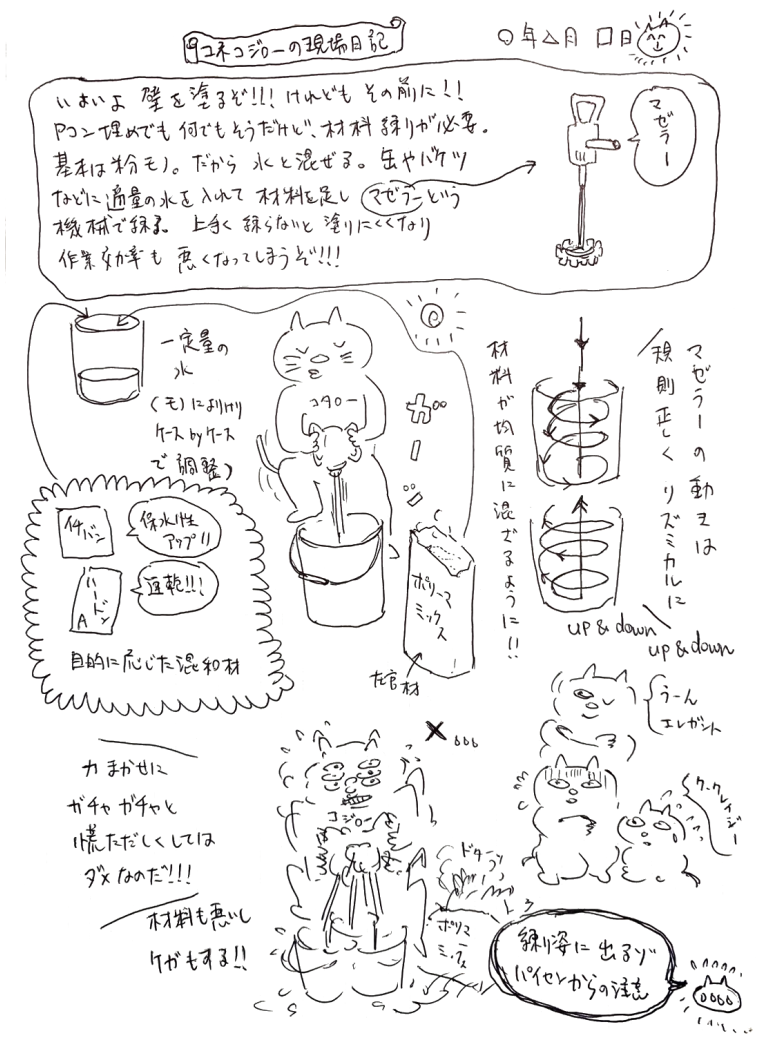 コネコジローの現場日記
〇年△月 口日
いよいよ 壁を塗るぞ!!! けれども その前に!!
Pコン埋めでも 何でもそうだけど、材料 練りが必要。
基本は粉モノ。だから 水と混ぜる。缶やバケツ
などに適量の水を入れて 材料を足し マゼラーという
機械で練る。 上手く 練らないと 塗りにくくなり
作業効率も 悪くなってしまうぞ!!!
マゼラー
一定量の
水
(モノによりけり
ケースbyケース
で調整)
コタロー
ガーッ
マゼラーの動きは
規則正しく リズミカルに
材料が均質に混ざるように!!
up & down
up & down
イチバン
保水性
アップ!!
ハードン
A
速乾!!!
目的に応じた混和材
ポリーマ
ミックス
左官材
うーん
エレガント
クークレイジー
力まかせに
ガチャガチャと
慌ただしくしては
ダメなのだ!!!
材料も悪いし
ケガもする!!
コジロー
ポリマー
ミックス
練り姿に出るゾ
パイセンからの注意